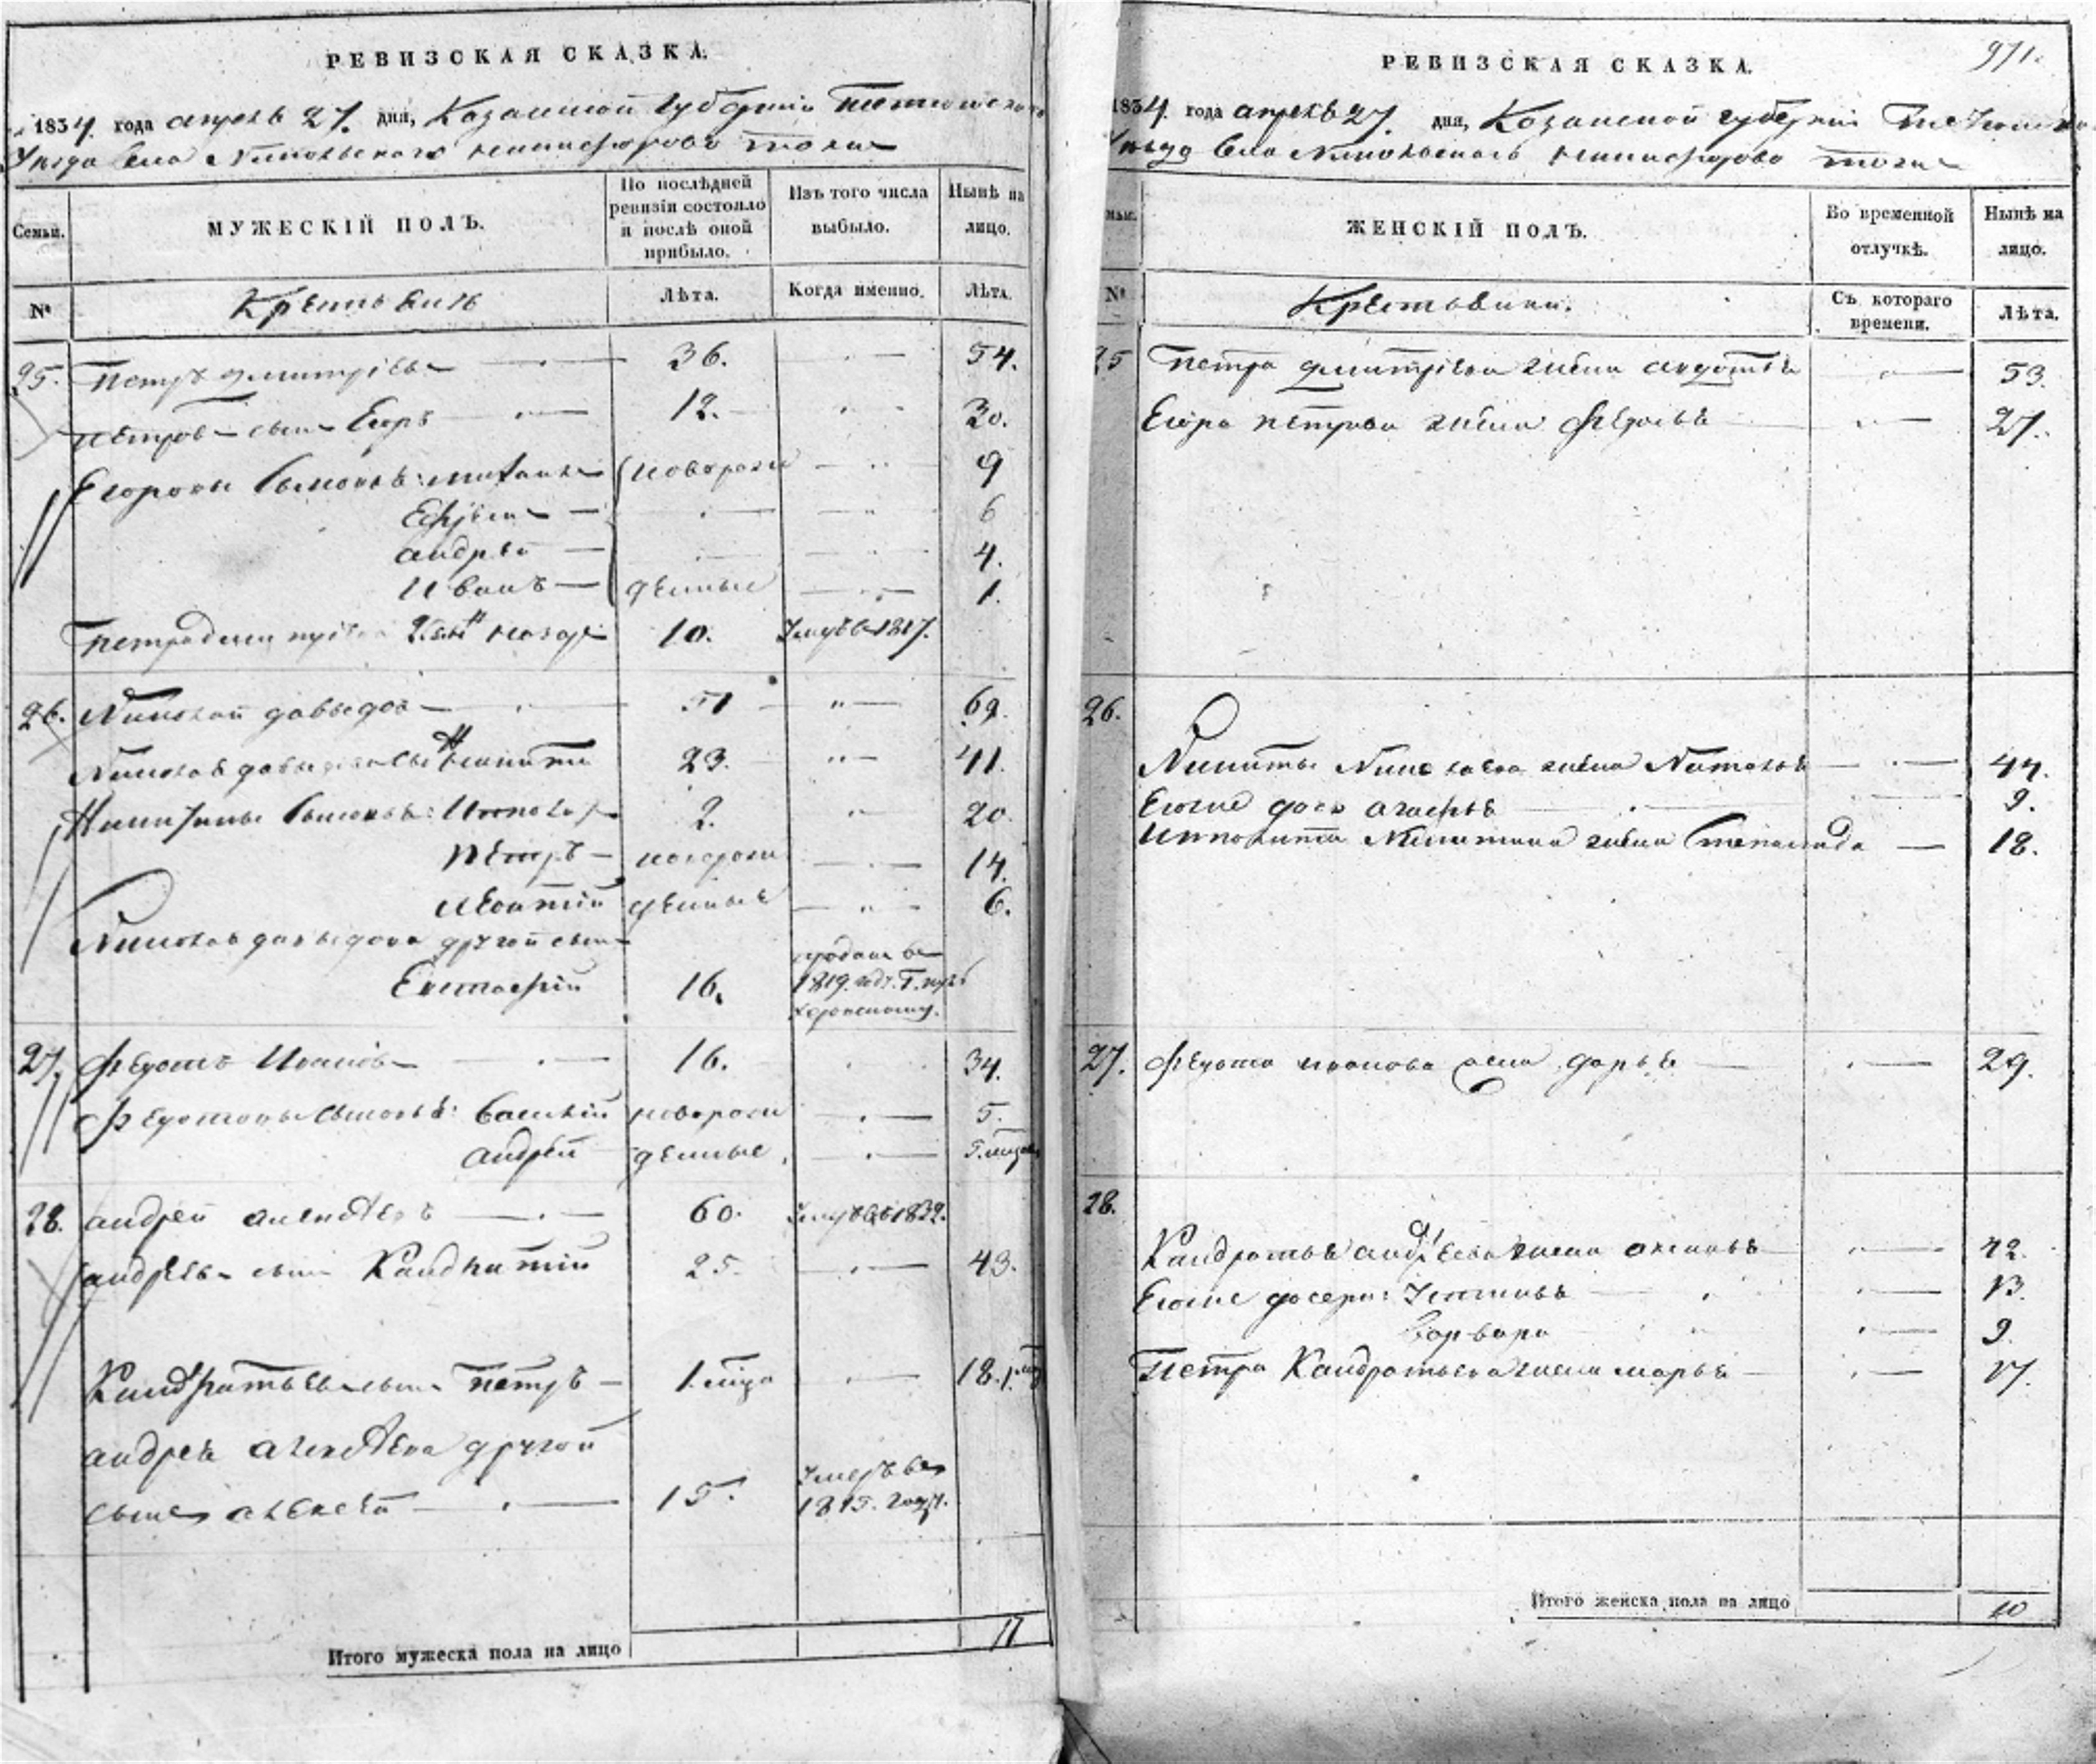 РЕВИЗСКАЯ СКАЗКА.
1834 года апреля 27. дня, Казанской губернии
Уезда Села Никольского тожъ
Семьи.
МУЖЕСКІЙ ПОЛЪ.
По послѣдней ревизіи состояло и послѣ оной прибыло.
Изъ того числа выбыло.
Нынѣ на лицо.
№
Крестьяне
Лѣта.
Когда именно.
Лѣта.
25. Петръ Дмитріевъ 36. 54.
Петровъ сынъ Егоръ 12. 30.
Егоровы сыновья: Михаилъ новорож 9
Ефремъ 6
Андрей 4.
Иванъ денные 1.
Петра Дмитріева 10. Умеръ 1817.
26. Николай Давыдовъ 51 69.
Николая Давыдова сынъ Никита 23. 41.
Никитины сыновья: Ипполитъ 2. 20.
Петръ новорож 14.
Леонтій денные 6.
Николая Давыдова другой сынъ
Евстафій 16. продан въ 1819. году
27. Федотъ Ивановъ 16. 34.
Федотовы сыновья: Василій новорож 5.
Андрей денные
28. Андрей Алексѣевъ 60. Умеръ 1832.
Андреевъ сынъ Кандратій 25. 43.
Кандратьевъ сынъ Петръ 1. 18.
Андрея Алексѣева другой
сынъ Алексей 15. Умеръ въ 1815. году.
Итого мужеска пола на лицо 17
971.
РЕВИЗСКАЯ СКАЗКА.
1834. года апреля 27. дня, Казанской губернии
Уезда Села Никольскаго тожъ
№
ЖЕНСКІЙ ПОЛЪ.
Во временной отлучкѣ.
Нынѣ на лицо.
Крестьянки.
Съ котораго времени.
Лѣта.
25 Петра Дмитріева жена Авдотья 53.
Егора Петрова жена Федосья 27.
26.
Никиты Николаева жена Наталья 44.
Ево же дочь Агафья 9.
Ипполита Никитина жена Степанида 18.
27. Федота Иванова жена Дарья 29.
28.
Кандратья Андреева жена Аксинья 42.
Ево же дочери: Устинья 13.
Варвара 9.
Петра Кандратьева жена Марья 17.
Итого женска пола на лицо 10